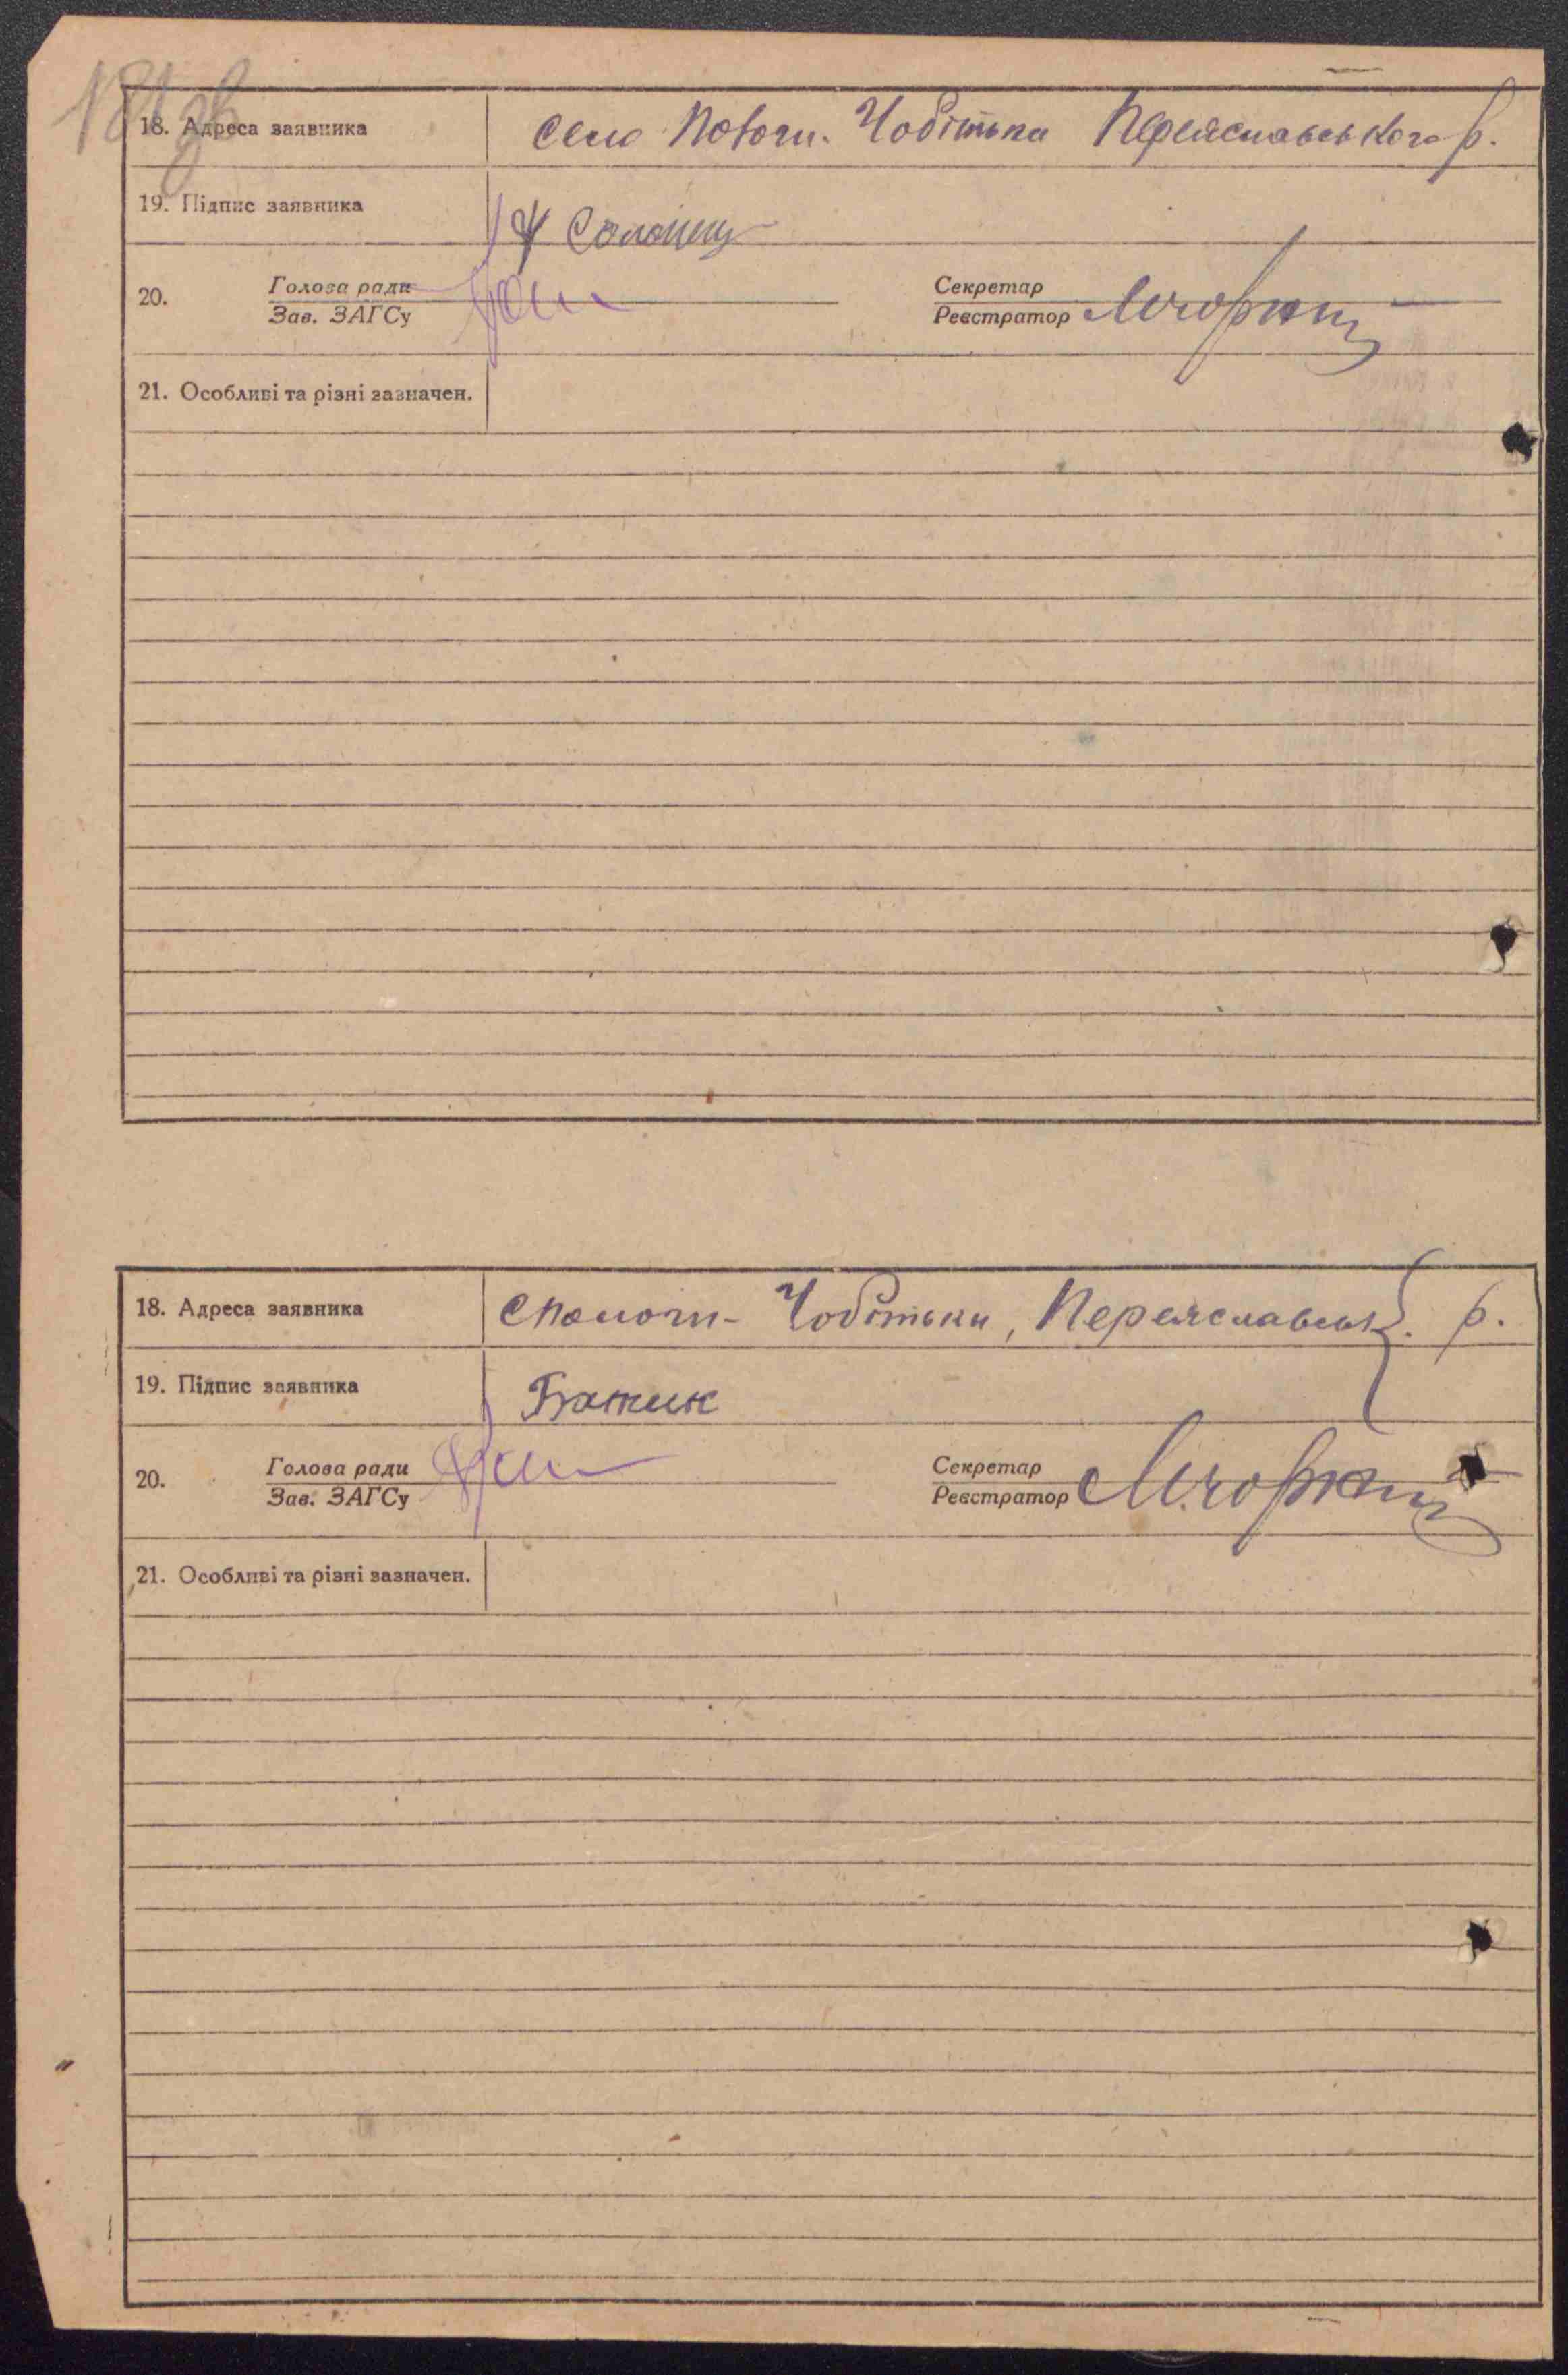 181 зв
18. Адреса заявника село Пологи-Чобітьки Переяславського р.
19. Підпис заявника Солонец
20. Голова ради Секретар
Зав. ЗАГСу Реєстратор
21. Особливі та різні зазначен.
18. Адреса заявника с Пологи-Чобітьки, Переяславськ. р.
19. Підпис заявника Бажик
20. Голова ради Секретар
Зав. ЗАГСу Реєстратор
21. Особливі та різні зазначен.